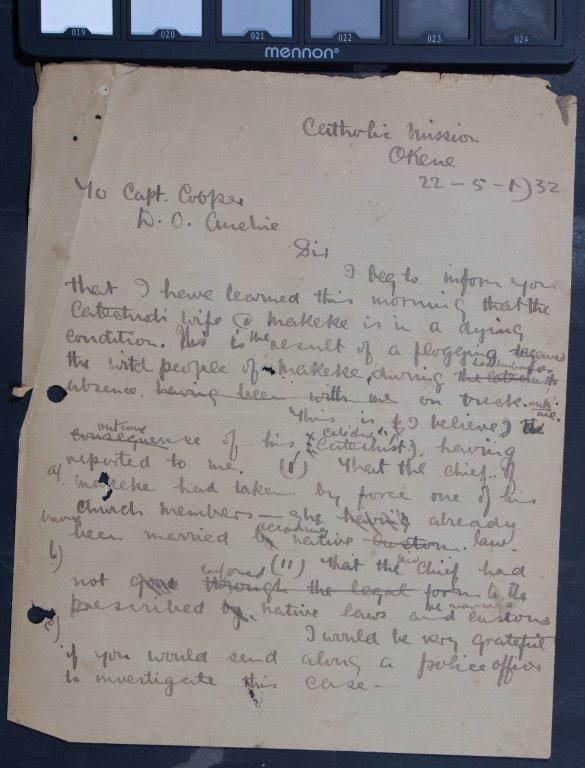 019 020 021 022 023 024
mennon®
Catholic Mission
Okene
22-5-1932
To Capt. Cooper
D. O.
Sir
I beg to inform you
that I have learned this morning that the
wife @ Makeke is in a dying
condition. This is the result of a flogging
the wild people of Makeke, during the
absence, having been with me on
This is (I believe) the
outcome
consequence of his (Catechist), having
reported to me. (i) That the chief of
a)
Makeke had taken by force one of his
church members – she having already
having
been married by according native custom. law.
b)
informed (ii) That the chief had
not gone through the legal form
prescribed by native laws and customs
I would be very grateful
if you would send along a police officer
to investigate this case.